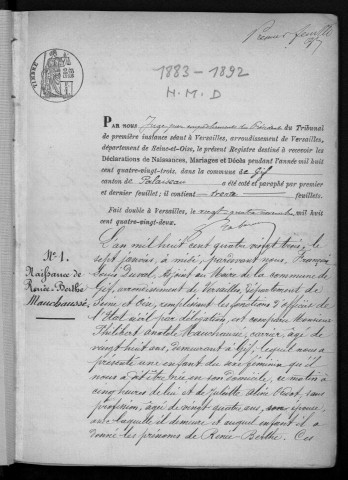 Premier feuillet
TIMBRE
1883-1892
N.M.D
PAR NOUS Juge par empêchement du Président du Tribunal
de première instance séant à Versailles, arrondissement de Versailles,
département de Seine-et-Oise, le présent Registre destiné à recevoir les
Déclarations de Naissances, Mariages et Décès pendant l'année mil huit
cent quatre-vingt-trois, dans la commune de Gif
canton de Palaiseau a été coté et paraphé par premier
et dernier feuillet ; il contient trente feuillets.
Fait double à Versailles, le vingt quatre novembre mil huit
cent quatre-vingt-deux.
N° 1.
Naissance de
Renée-Berthe
Mauchaussé
L'an mil huit cent quatre vingt trois, le
sept janvier, à midi, pardevant nous, François
Louis Duval, Adjoint au Maire de la commune de
Gif, arrondissement de Versailles, département de
Seine et Oise, remplissant les fonctions d'officier de
l'État civil par délégation, est comparu Monsieur
Philibert Anatole Mauchaussé, carrier, âgé de
vingt huit ans, demeurant à Gif, lequel nous a
présenté une enfant du sexe féminin qu'il
nous a dit être née en son domicile, ce matin à
cinq heures de lui et de Juliette sans
profession, âgée de vingt quatre ans, son épouse,
avec laquelle il demeure et auquel enfant il a
donné les prénoms de Renée Berthe. Ces